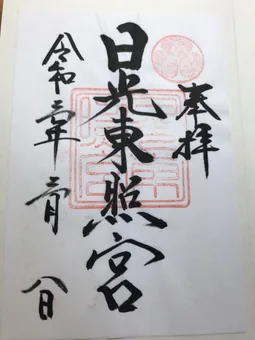 奉拝
日光東照宮
令和三年三月八日